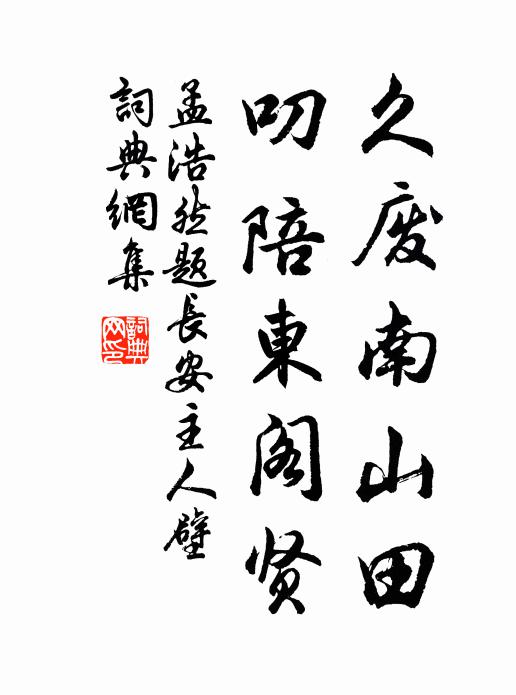 久废南山田
叨陪東阁贤
孟浩然题長安主人壁
詞典網集
詞典网印